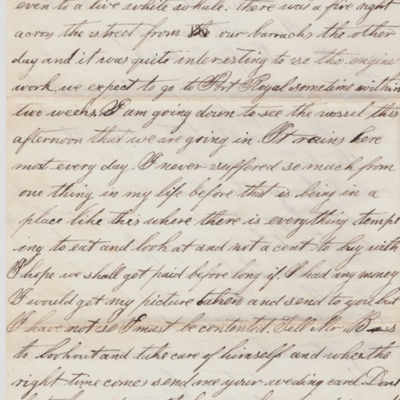 even to a live white whale. there was a fire right
across the street from our barracks the other
day and it was quite interesting to se the engins
work, we expect to go to Port Royal sometime within
two weeks. I am going down to see the vessel this
afternoon that we are going in. It rains here
most every day. I never suffered so much from
one thing in my life before that is being in a
place like this where there is everything temps
ing to eat and look at and not a cent to buy with
I hope we shall get paid before long if I had any money
I would get my picture taken and send to you but
I have not so I must be contented. Tell Mr B—s
to lookout and take care of himself and when the
right time comes send me your weding card. Dont